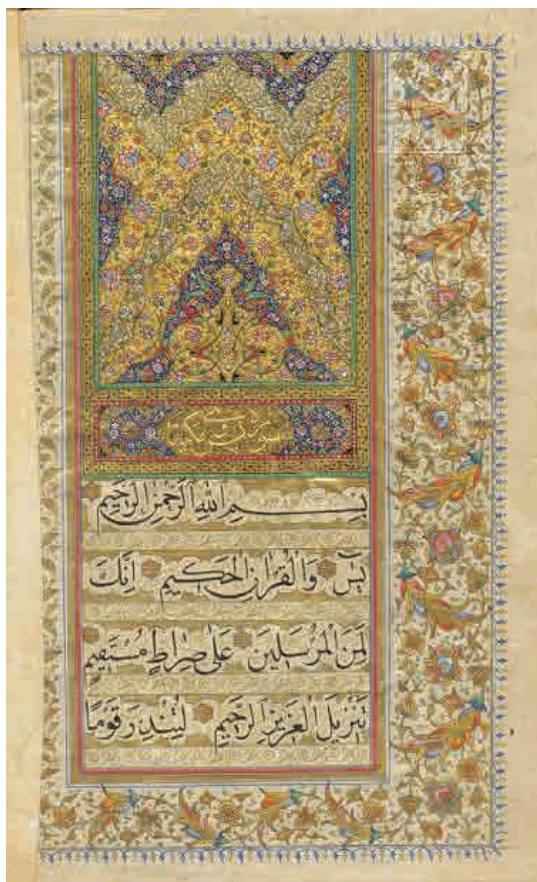 بِسْمِ اللهِ الرَّحْمٰنِ الرَّحِيْمِ
يٰسۤ وَالْقُرْاٰنِ الْحَكِيْمِ اِنَّكَ
لَمِنَ الْمُرْسَلِيْنَ عَلٰى صِرَاطٍ مُسْتَقِيْمٍ
تَنْزِيْلَ الْعَزِيْزِ الرَّحِيْمِ لِتُنْذِرَ قَوْمًا